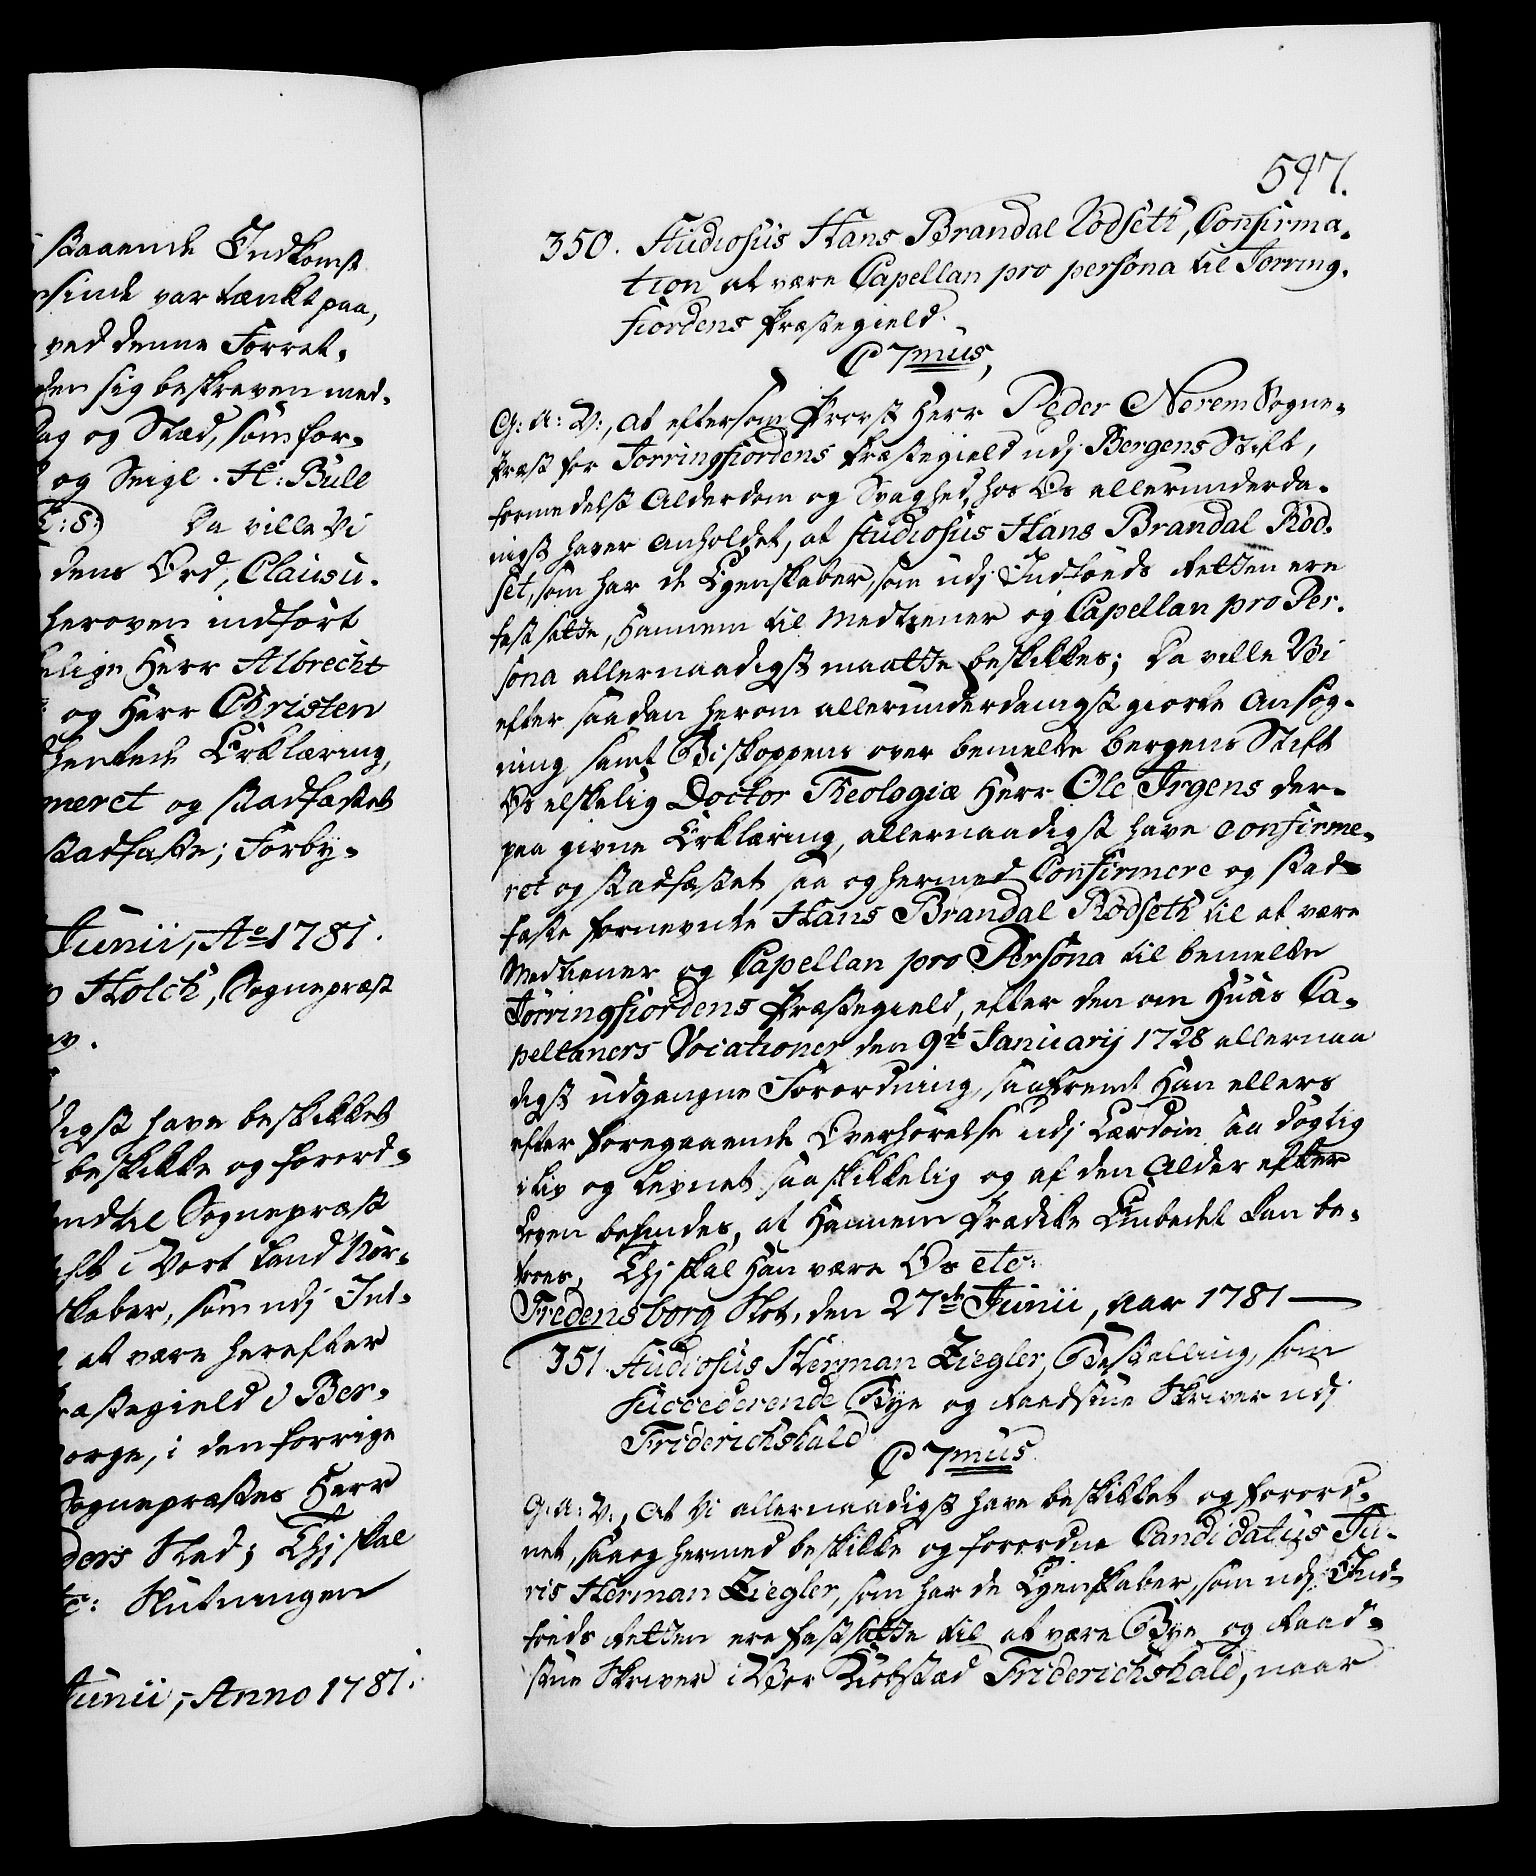 staaende Indkomst
sinde var tænkt paa,
ved denne Forret-
den sig beskreven med-
og Stæd, som for-
og Seigl. H: Bull
L:S:) Da ville Vi
dens Ord, Clausu-
heroven indført
elige Herr Albrecht
og Herr Christen
hentede Erklæring,
meret og stadfæstet
stadfæste; Forby-
Junii, Ao 1781.
Holck, Sognepræst
digst have beskikket
beskikke og forord-
Sognepræst
i Vort Land Nor-
skaber, som udj Ind-
at være herefter
ræstegield i Ber-
orge, i den forrige
Sognepræstes Herr
ders Stæd; Thj skal
tc: Slutningen
Junii, Anno 1781.
547.
350. Studiosus Hans Brandal Rödseth, Confirma-
tion at være Capellan pro persona til Jorring-
fiordens Præstegield.
C 7mus,
G: A: V:, at eftersom Provst Herr Peder Nerem Sogne-
præst for Jorringfiordens Præstegield udj Bergens Stift,
formedelst Alderdom og Svaghed, hos Os allerunderda-
nigst haver anholdet, at Studiosus Hans Brandal Röd-
set, som har de Egenskaber, som udj Indföds Retten ere
fastsatte, Hannem til Medtiener og Capellan pro Per-
sona allernaadigst maatte beskikkes; Da ville Vi
efter saadan herom allerunderdanigst giorte Ansög-
ning samt Biskoppens over bemelte Bergens Stift
Os elskelig Doctor Theologiæ Herr Ole Irgens der-
paa givne Erklæring, allernaadigst have confirme-
ret og stadfæstet saa og hermed Confirmere og stad-
fæste fornevnte Hans Brandal Rödseth til at være
Medtiener og Capellan pro Persona til bemelte
Jörringfiordens Præstegield, efter den om Huus Ca-
pellaners Vocationer den 9de Januarij 1728 allernaa
digst udgangne Forordning, saafremt Han ellers
efter foregaaende Overhörelse udj Lærdom saa dögtig
i Liv og Levnet saa skikkelig og af den Alder efter
Loven befindes, at Hannem Prædike Embedet kan be-
troes, Thj skal Han være Os etc:
Fredensborg Slot, den 27de Junii, Aar 1781 —
351 Studiosus Herman Ziegler, Bestalling, som
Succederende Bye og Raadstue Skriver udj
Friderichshald
C 7mus
G: A: V:, At Vi allernaadigst have beskikket og forord-
net, saa og hermed beskikke og forordne Candidatus Ju-
ris Herman Ziegler, som har de Egenskaber, som udj Ind-
föds Retten ere fastsatte til at være Bye og Raad-
stue Skriver i Vor Kiöbstæd Friderichshald, naar